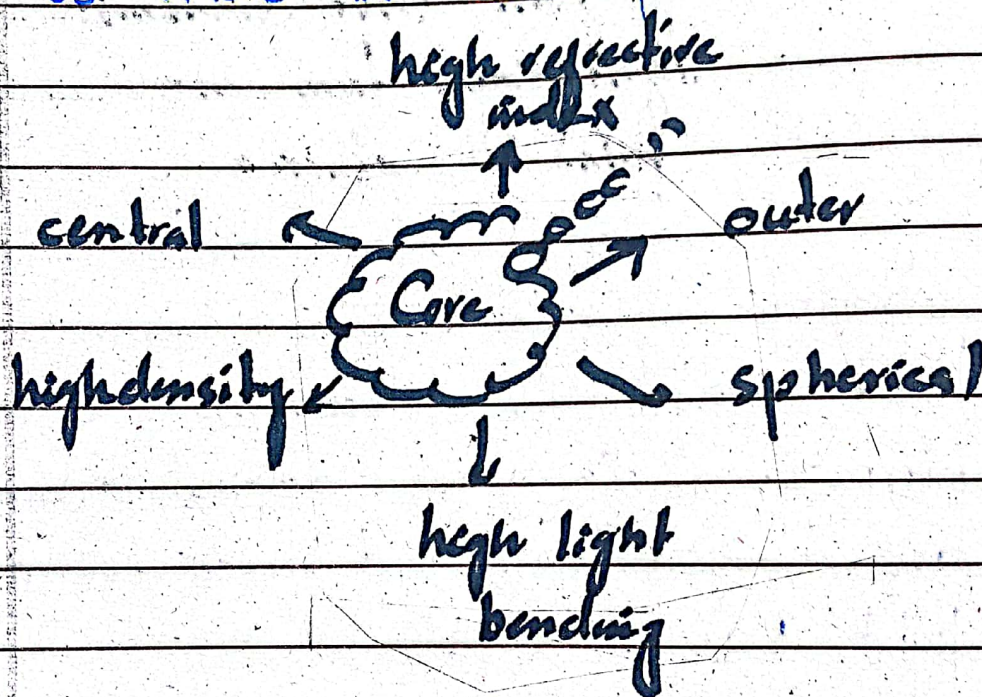 high refrective
index
central
outer
Core
highdensity
spherical
high light
bending